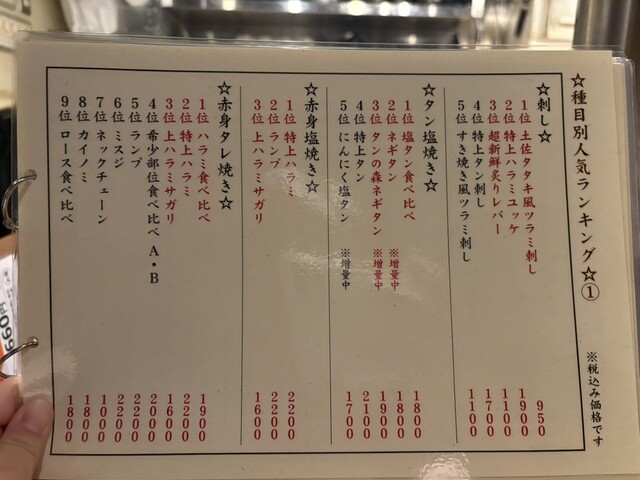 ☆種目別人気ランキング☆①
※税込み価格です
☆刺し☆
1位 土佐タタキ風ツラミ刺し 950
2位 特上ハラミユッケ 1900
3位 超新鮮炙りレバー 1100
4位 特上タン刺し 1700
5位 すき焼き風ツラミ刺し 1100
☆タン塩焼き☆
1位 塩タン食べ比べ 1800
2位 ネギタン ※増量中 1800
3位 タンの森ネギタン ※増量中 1900
4位 特上タン 2100
5位 にんにく塩タン ※増量中 1700
☆赤身塩焼き☆
1位 特上ハラミ 2200
2位 ランプ 2200
3位 上ハラミサガリ 1600
☆赤身タレ焼き☆
1位 ハラミ食べ比べ 1900
2位 特上ハラミ 2200
3位 上ハラミサガリ 1600
4位 希少部位食べ比べA・B 2000
5位 ランプ 2200
6位 ミスジ 2200
7位 ネックチェーン 1000
8位 カイノミ 1800
9位 ロース食べ比べ 1800
660円